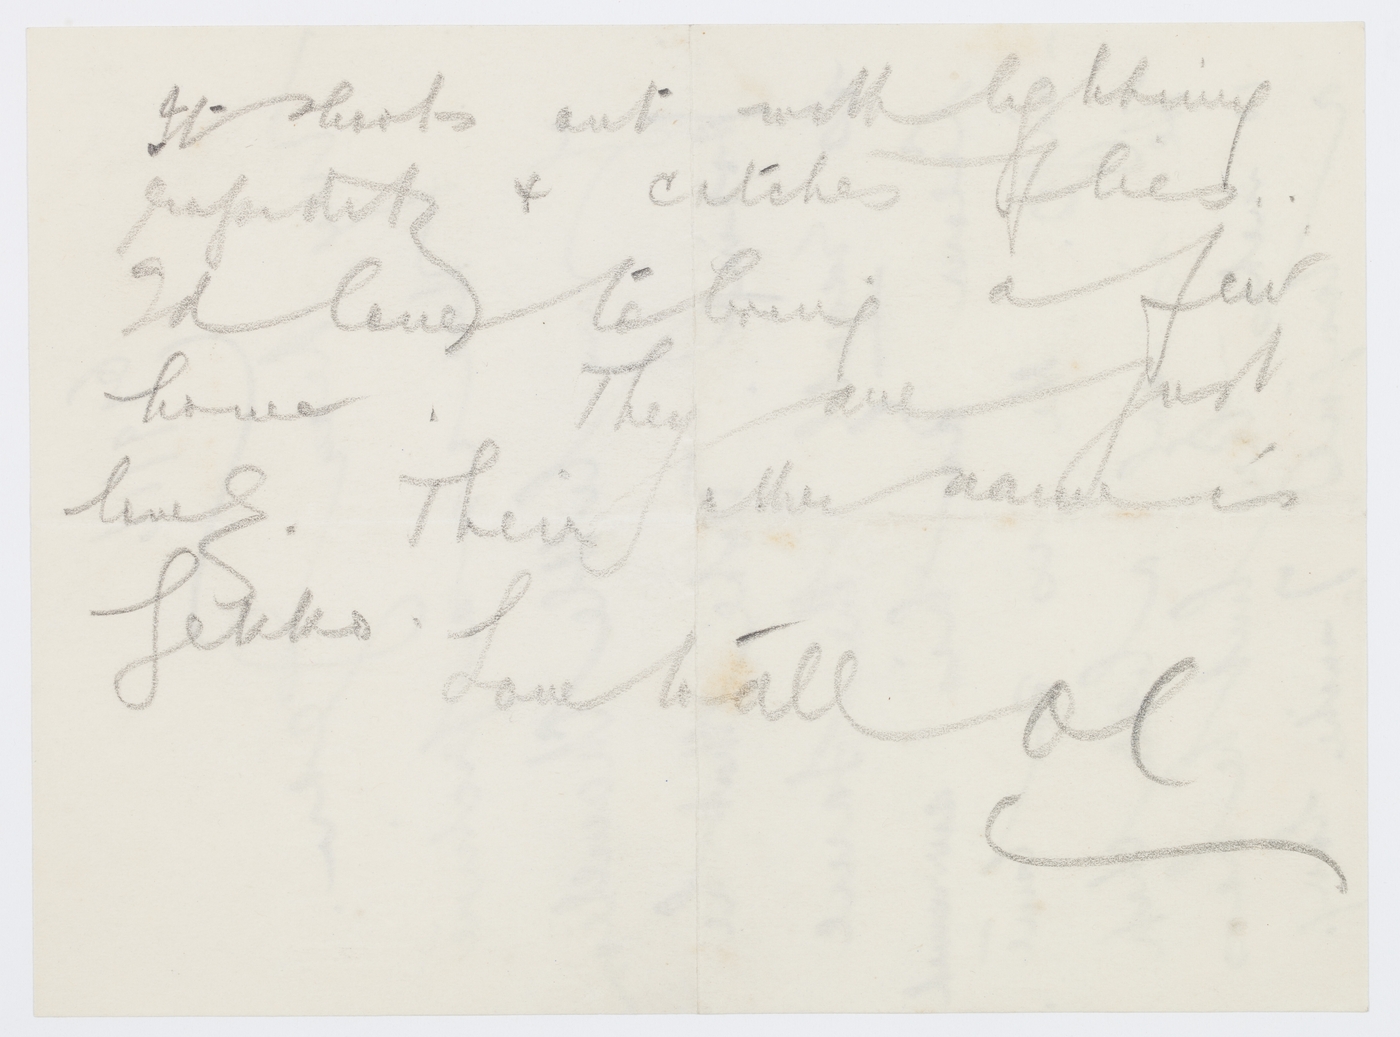 It shoots out with lightning
rapidity & catches flies..
I'd love to bring a few
home. They are just
lovely. Their other name is
Gekko. Love to all Ol